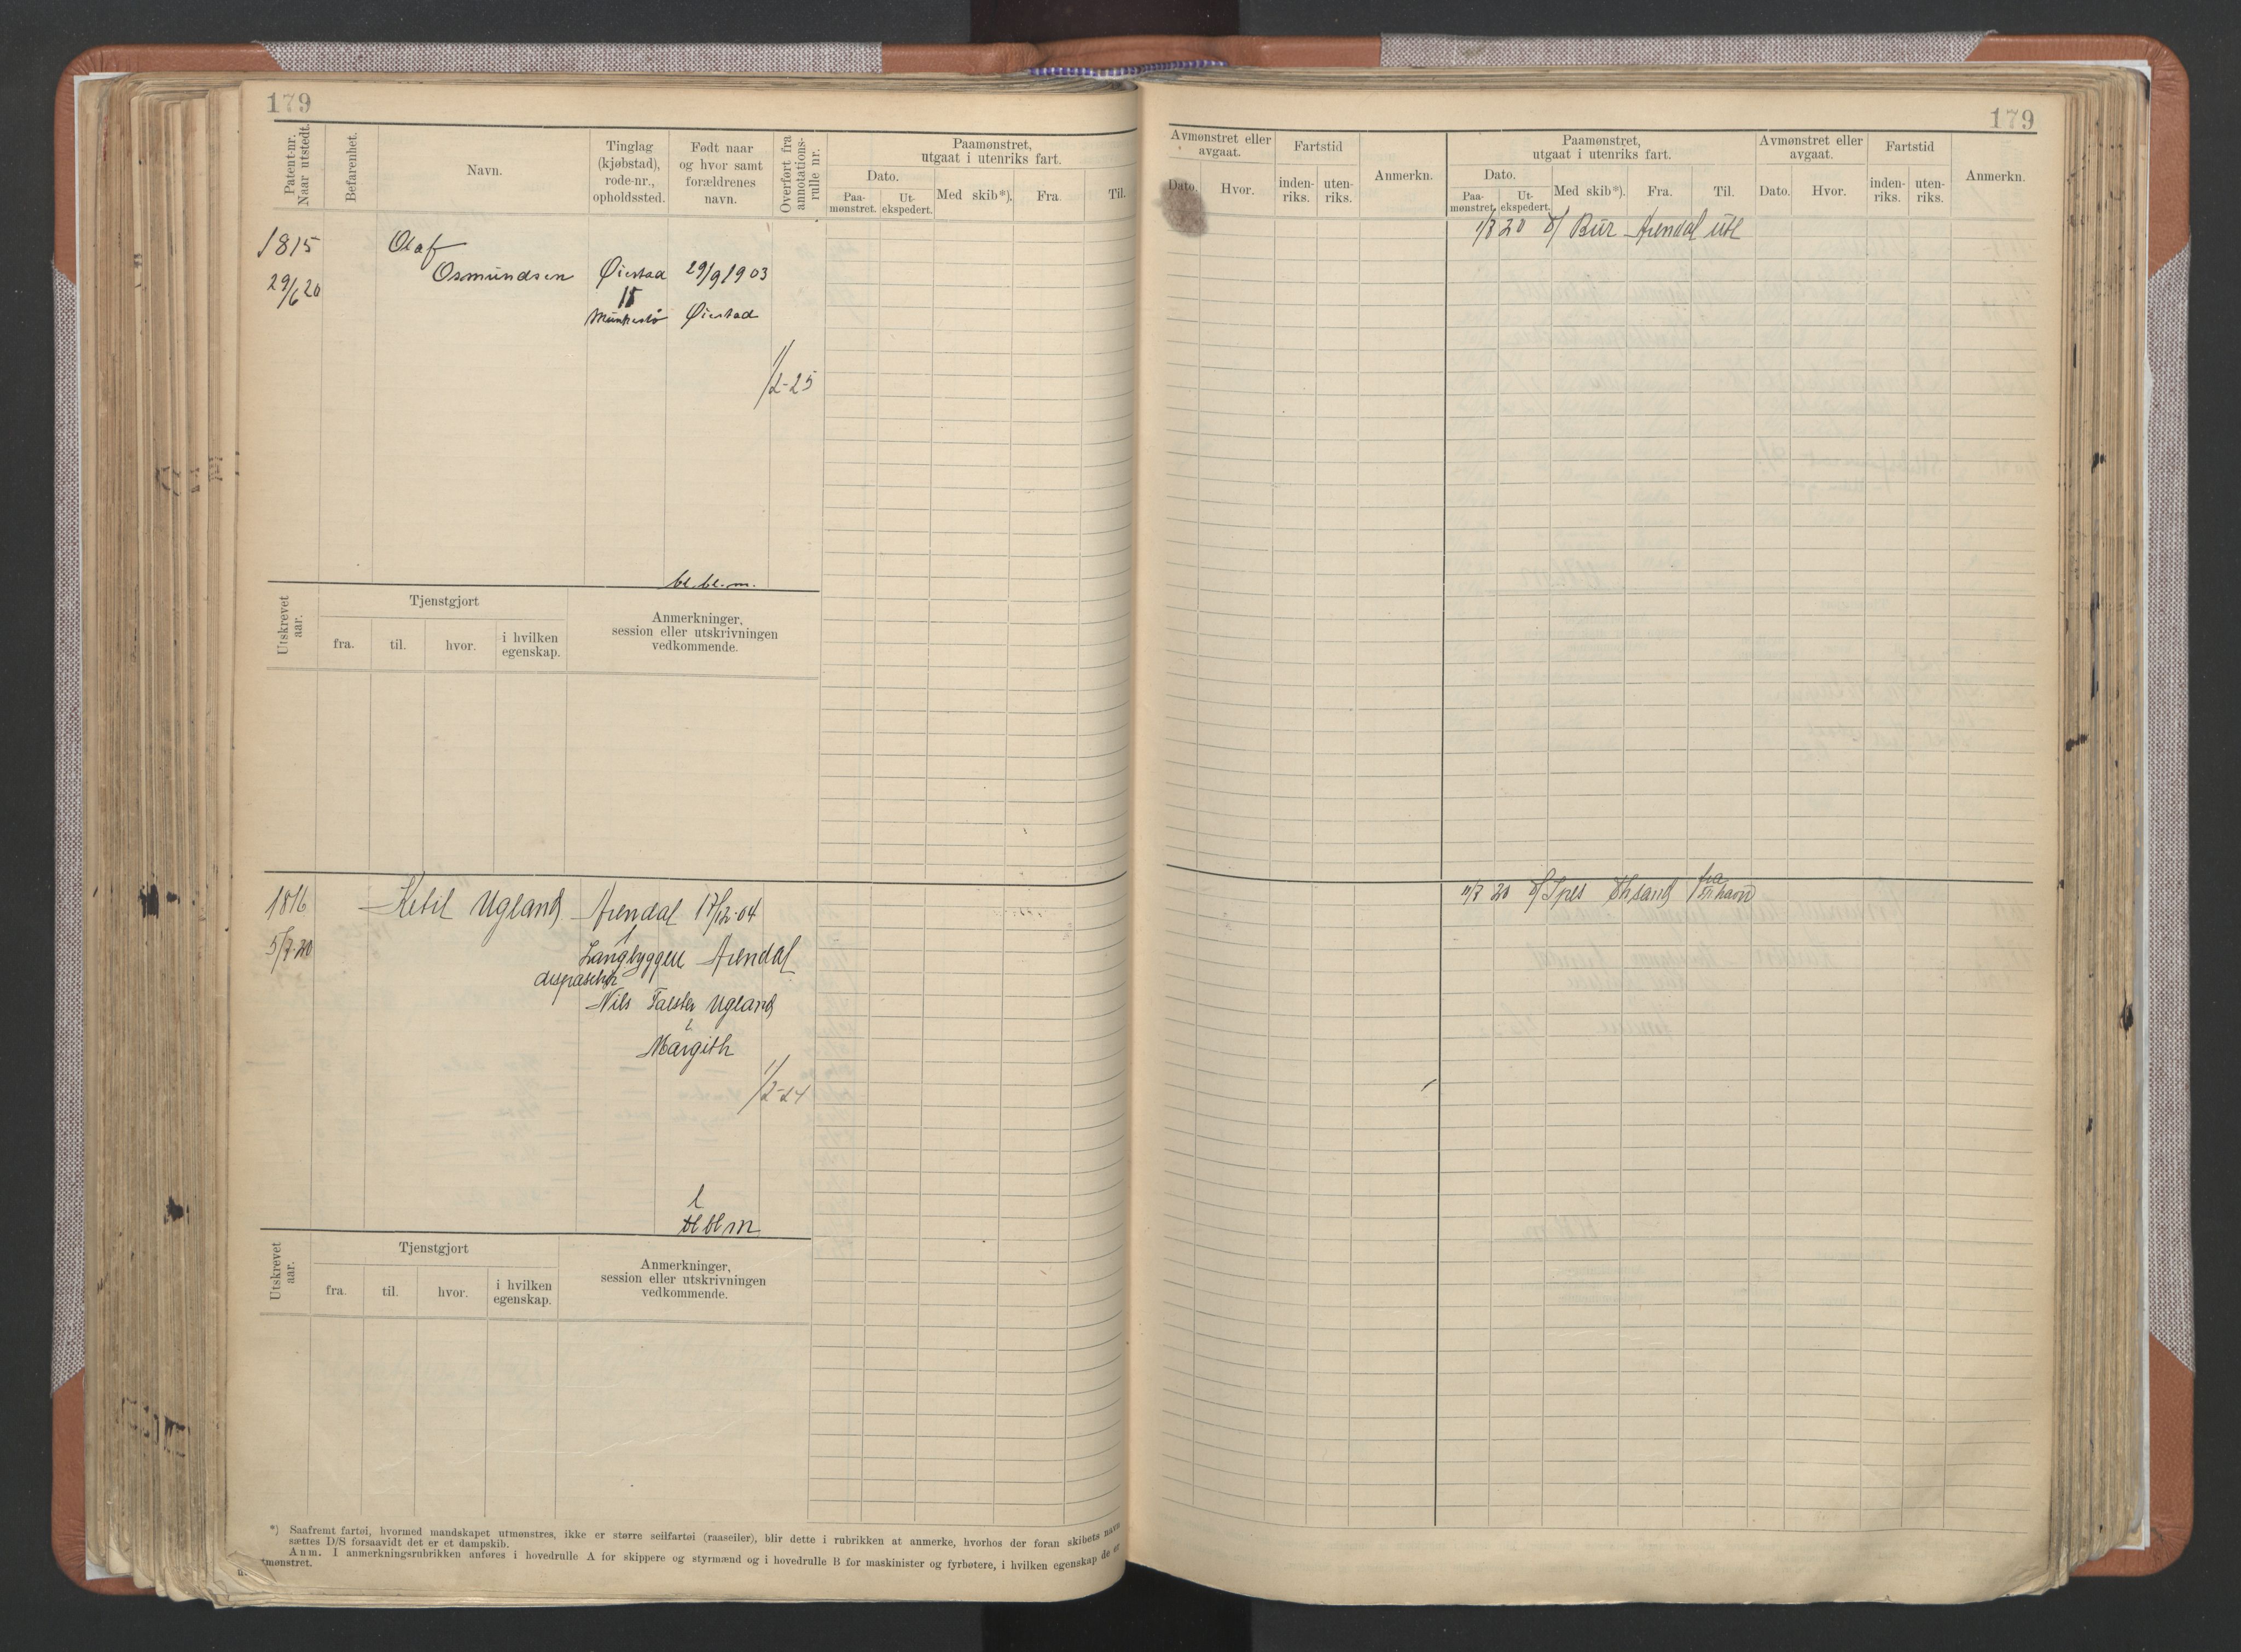 179
Patent-nr. Naar utstedt.
Befarenhet.
Navn.
Tinglag (kjøbstad), rode-nr., opholdssted.
Født naar og hvor samt forældrenes navn.
Overført fra annotations-rulle nr.
Paamønstret, utgaat i utenriks fart.
Dato.
Paa-mønstret.
Ut-ekspedert.
Med skib*).
Fra.
Til.
1815
Olaf
Osmundsen Øiestad 29/9 1903
29/6 20
Øiestad
1/2-25
bl. bl. m.
Utskrevet aar.
Tjenstgjort
fra.
til.
hvor.
i hvilken egenskap.
Anmerkninger, session eller utskrivningen vedkommende.
1816 Ketil Ugland Arendal 17/12-04
1
5/7-20 Langbryggen Arendal
dispaschør
Nils Falster Ugland
&
Margith
1/2-24
bl bl m
Utskrevet aar.
Tjenstgjort
fra.
til.
hvor.
i hvilken egenskap.
Anmerkninger, session eller utskrivningen vedkommende.
*) Saafremt fartøi, hvormed mandskapet utmønstres, ikke er større seilfartøi (raaseiler), blir dette i rubrikken at anmerke, hvorhos der foran skibets navn
sættes D/S forsaavidt det er et dampskib.
Anm. I anmerkningsrubrikken anføres i hovedrulle A for skippere og styrmænd og i hovedrulle B for maskinister og fyrbøtere, i hvilken egenskap de er
utmønstret.
179
Avmønstret eller avgaat.
Dato.
Hvor.
Fartstid
inden-riks.
uten-riks.
Anmerkn.
Paamønstret, utgaat i utenriks fart.
Dato.
Paa-mønstret.
Ut-ekspedert.
Med skib*).
Fra.
Til.
Avmønstret eller avgaat.
Dato.
Hvor.
Fartstid
inden-riks.
uten-riks.
Anmerkn.
1/7 20 D/ Bur Arendal utl
11/7 20 D/ Spes Chsand fra